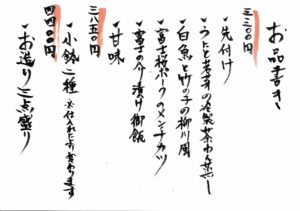 お品書き
三三〇〇円
・先付け
・うたと若芽の冷製茶わん蒸し
・白魚と竹の子の柳川風
・富士桜ポークのメンチカツ
・富子の介漬け御飯
・甘味
三八五〇円
・小鉢二種 ※仕入れにより変わります
四四〇〇円
・お造り三点盛り